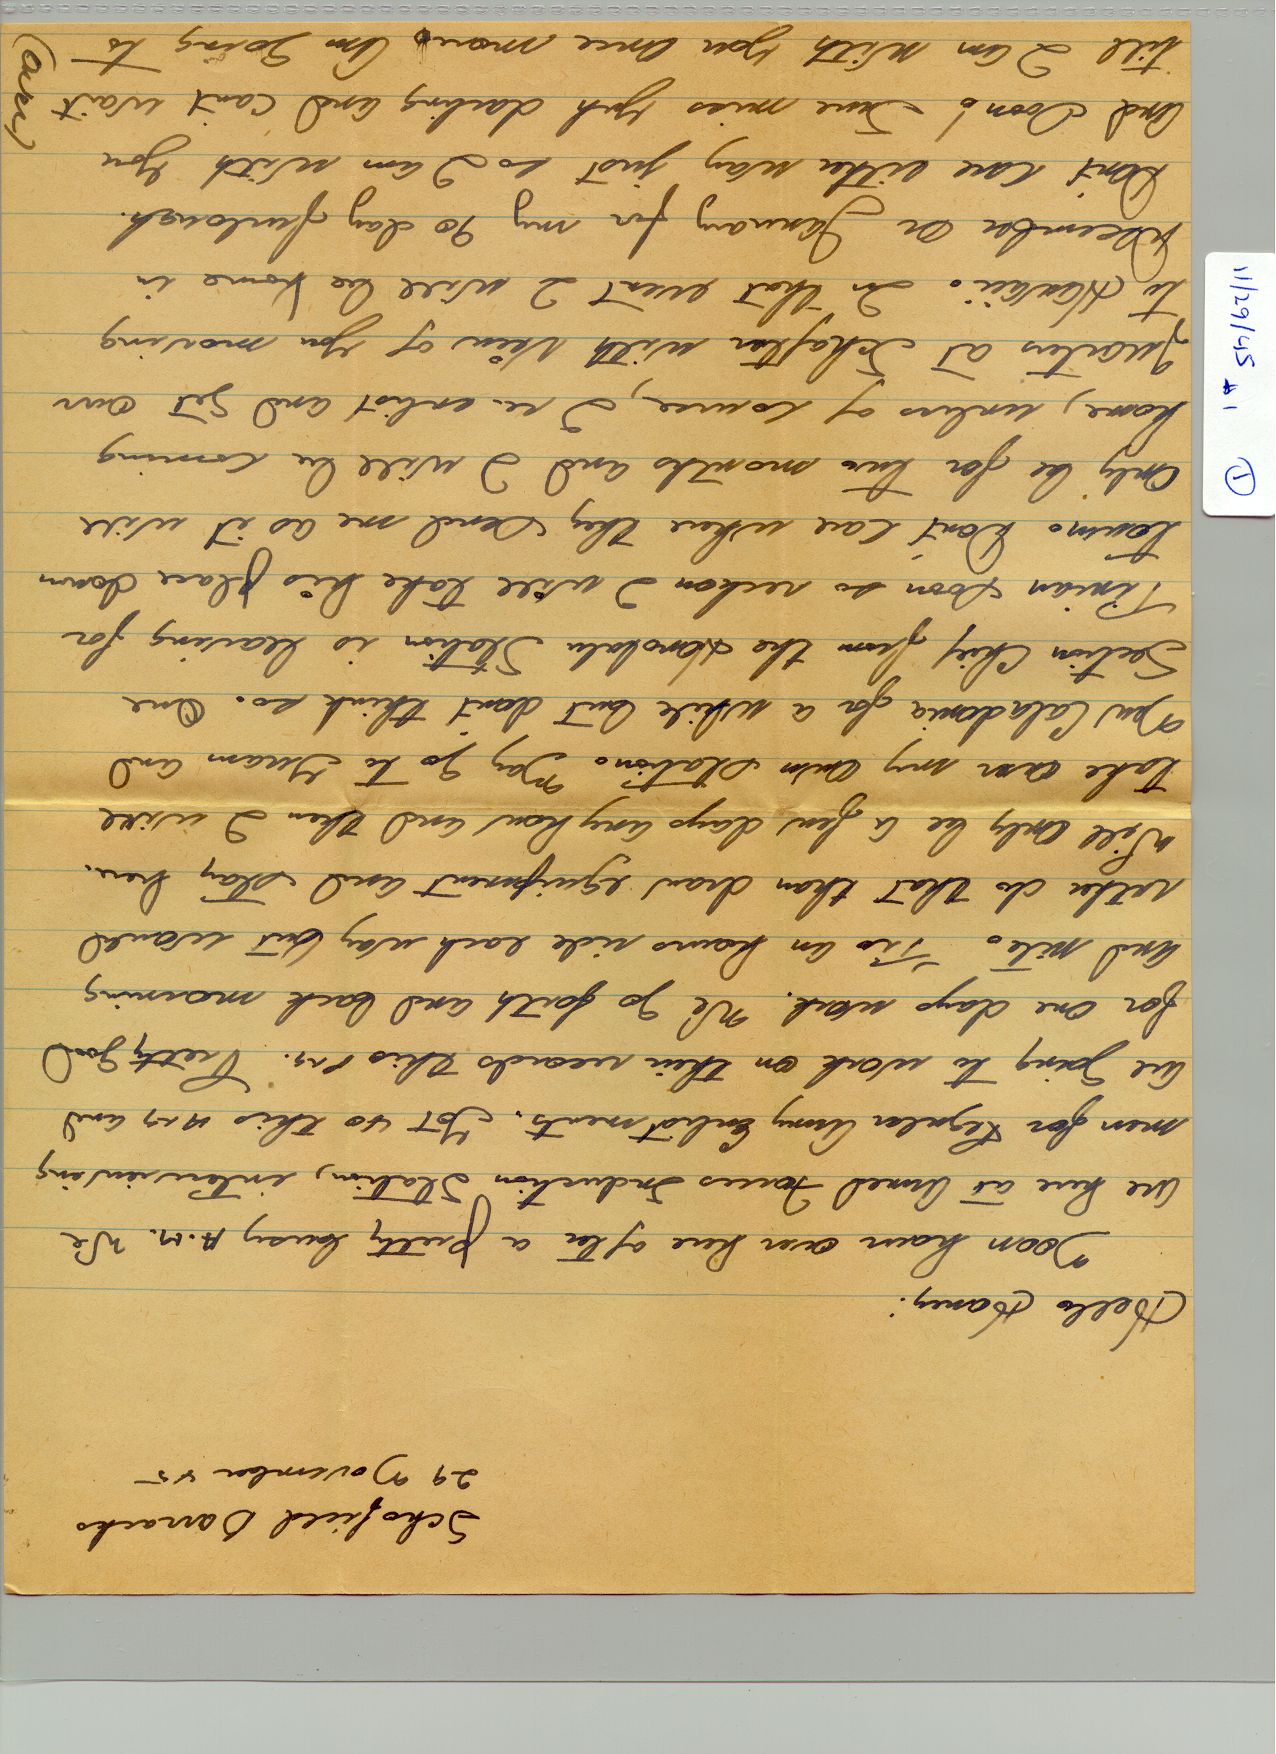 Schofield Barracks
29 November 45
Hello Honey:
Noon hour over here after a pretty busy A.M. We
are here at Armed Forces Induction Station, interviewing
men for Regular Army Enlistments. Got 40 this A.M and
are going to work on their records this P.M. Pretty good
for one days work. We go forth and back mourning
and nite. Tis an hours ride each way but would
rather do that than draw equipment and stay here.
Will only be a few days anyhow and then I will
take over my own station. May go to Guam and
New Caladonia for a while but don't think so. One
Section Chief from the Honolulu Station is leaving for
Tinian soon so reckon I will take his place down
town. Don't care where they send me as it will
only be for two months and I will be coming
home, unless of course, I re-enlist and get our
quarters at Schafter with view of you moving
to Hawaii. In that event I will be home in
December or January for my 90 day furlough.
Don't care either way just so I am with you
and soon! Sure miss yuh darling and can't wait
till I am with you once more. Am going to
(over)
11/29/45 #1
1